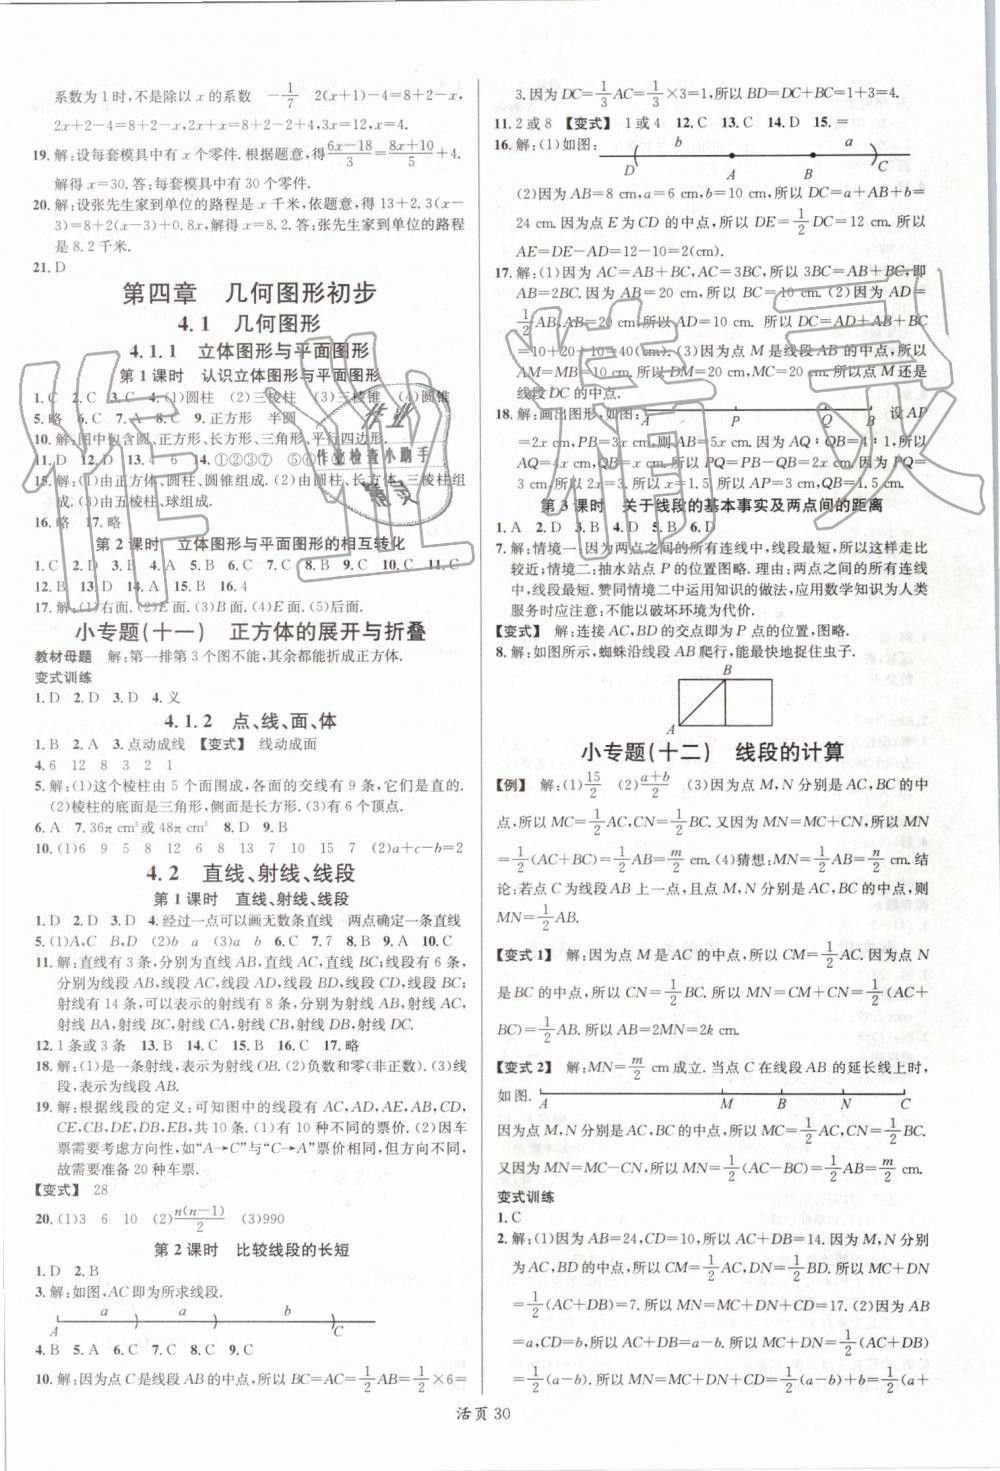 系数为1时,不是除以x的系数 -1/7 2(x+1)-4=8+2-x,
2x+2-4=8+2-x,2x+x=8+2-2+4,3x=12,x=4.
19. 解:设每套模具中有x个零件.根据题意,得(6x-18)/3=(8x+10)/5+4.
解得x=30.答:每套模具中有30个零件.
20. 解:设张先生家到单位的路程是x千米,依题意,得13+2.3(x-3)=8+2(x-3)+0.8x,解得x=8.2.答:张先生家到单位的路程
是8.2千米.
21. D
第四章 几何图形初步
4.1 几何图形
4.1.1 立体图形与平面图形
第1课时 认识立体图形与平面图形
1. C 2. C 3. C 4. (1)圆柱 (2)三棱柱 (3)三棱锥 (4)圆锥
5. 略 6. C 7. A 8. C 9. 正方形 半圆
10. 解:图中包含圆、正方形、长方形、三角形、平行四边形.
11. D 12. D 13. 4 6 14. ①②③⑦
15. 解:(1)由正方体、圆柱、圆锥组成.(2)由圆柱、长方体、三棱柱组
成.(3)由五棱柱、球组成.
16. 略 17. 略
第2课时 立体图形与平面图形的相互转化
1. C 2. D 3. B 4. A 5. C 6. B 7. C 8. B 9. C 10. C 11. C
12. B 13. D 14. A 15. B 16. 4
17. 解:(1)右面.(2)E面.(3)B面.(4)E面.(5)后面.
小专题(十一) 正方体的展开与折叠
教材母题 解:第一排第3个图不能,其余都能折成正方体.
变式训练
1. D 2. D 3. D 4. 义
4.1.2 点、线、面、体
1. B 2. A 3. 点动成线 【变式】 线动成面
4. 6 12 8 3 2 1
5. 解:(1)这个棱柱由5个面围成,各面的交线有9条,它们是直的.
(2)棱柱的底面是三角形,侧面是长方形.(3)有6个顶点.
6. A 7. 36π cm³或48π cm³ 8. D 9. B
10. (1)6 9 5 8 12 6 8 13 7 10 15 7 (2)a+c-b=2
4.2 直线、射线、线段
第1课时 直线、射线、线段
1. D 2. D 3. D 4. 经过一点可以画无数条直线 两点确定一条直线
5. (1)A,C B,D (2)b a (3)a b 6. C 7. 7 8. B 9. A 10. C
11. 解:直线有3条,分别为直线AB,直线AC,直线BC;线段有6条,
分别为线段AB,线段AC,线段AD,线段BD,线段CD,线段BC;
射线有14条,可以表示的射线有8条,分别为射线AB,射线AC,
射线BA,射线BC,射线CA,射线CB,射线DB,射线DC.
12. 1条或3条 13. B 14. C 15. B 16. C 17. 略
18. 解:(1)是一条射线,表示为射线OB.(2)负数和零(非正数).(3)线
段,表示为线段AB.
19. 解:根据线段的定义:可知图中的线段有AC,AD,AE,AB,CD,
CE,CB,DE,DB,EB,共10条.(1)有10种不同的票价.(2)因车
票需要考虑方向性,如“A→C”与“C→A”票价相同,但方向不同,
故需要准备20种车票.
【变式】 28
20. (1)3 6 10 (2)n(n-1)/2 (3)990
第2课时 比较线段的长短
1. D 2. B
3. 解:如图,AC即为所求线段.
a a b
A C
4. B 5. A 6. C 7. C 8. C 9. C
10. 解:因为点C是线段AB的中点,所以BC=AC=1/2AB=1/2×6=
3.因为DC=1/3AC=1/3×3=1,所以BD=DC+BC=1+3=4.
11. 2或8 【变式】 1或4 12. C 13. C 14. D 15. =
16. 解:(1)如图: b a
D A B C
(2)因为AB=8 cm,a=6 cm,b=10 cm,所以DC=a+AB+b=
24 cm.因为点E为CD的中点,所以DE=1/2DC=12 cm.所以
AE=DE-AD=12-10=2(cm).
17. 解:(1)因为AC=AB+BC,AC=3BC,所以3BC=AB+BC,即
AB=2BC.因为AB=20 cm,所以BC=10 cm.(2)因为AD=
1/2AB,AB=20 cm,所以AD=10 cm.所以DC=AD+AB+BC
=10+20+10=40(cm).(3)因为点M是线段AB的中点,所以
AM=MB=10 cm.所以MC=MD=20 cm.所以点M还是
线段DC的中点.
18. 解:画出图形,如图: A P Q B 设AP
=2x cm,PB=3x cm,则AB=5x cm.因为AQ∶QB=4∶1,所
以AQ=4x cm,QB=x cm.所以PQ=PB-QB=2x cm.因为PQ=
3 cm,所以2x=3.所以x=1.5,所以AP=3 cm,QB=1.5 cm.
第3课时 关于线段的基本事实及两点间的距离
1. A 2. D 3. B 4. D 5. B 6. D
7. 解:情境一:因为两点之间的所有连线中,线段最短,所以这样走比
较近;情境二:抽水站点P的位置图略.理由:两点之间的所有连线
中,线段最短.赞同情境二中运用知识的做法,应用数学知识为人类
服务时应注意:不能以破坏环境为代价.
【变式】 解:连接AC,BD的交点即为P点的位置,图略.
8. 解:如图所示,蜘蛛沿线段AB爬行,能最快地捉住虫子.
B
A
小专题(十二) 线段的计算
【例】 解:(1)15/2 (2)(a+b)/2 (3)因为点M,N分别是AC,BC的中
点,所以MC=1/2AC,CN=1/2BC.又因为MN=MC+CN,所以MN
=1/2(AC+BC)=1/2AB=m/2 cm.(4)猜想:MN=m/2 cm.结
论:若点C为线段AB上一点,且点M,N分别是AC,BC的中点,则
MN=1/2AB.
【变式1】 解:因为点M是AC的中点,所以CM=1/2AC.因为点N
是BC的中点,所以CN=1/2BC.所以MN=CM+CN=1/2(AC+
BC)=1/2AB.所以AB=2MN=2k cm.
【变式2】 解:MN=m/2 cm成立.当点C在线段AB的延长线上时,
如图: A M B N C
因为点M,N分别是AC,BC的中点,所以MC=1/2AC,CN=1/2BC.
又因为MN=MC-CN,所以MN=1/2(AC-BC)=1/2AB=m/2 cm.
变式训练
1. C
2. 解:(1)因为AB=24,CD=10,所以AC+DB=14.因为M,N分别
为AC,BD的中点,所以CM=1/2AC,DN=1/2BD.所以MC+DN
=1/2(AC+DB)=7.所以MN=MC+DN+CD=17.(2)因为AB
=a,CD=b,所以AC+DB=a-b.所以MC+DN=1/2(AC+DB)
=1/2(a-b).所以MN=MC+DN+CD=1/2(a-b)+b=1/2(a+
活页 30
作业精灵
作业
作业检查小助手
精灵